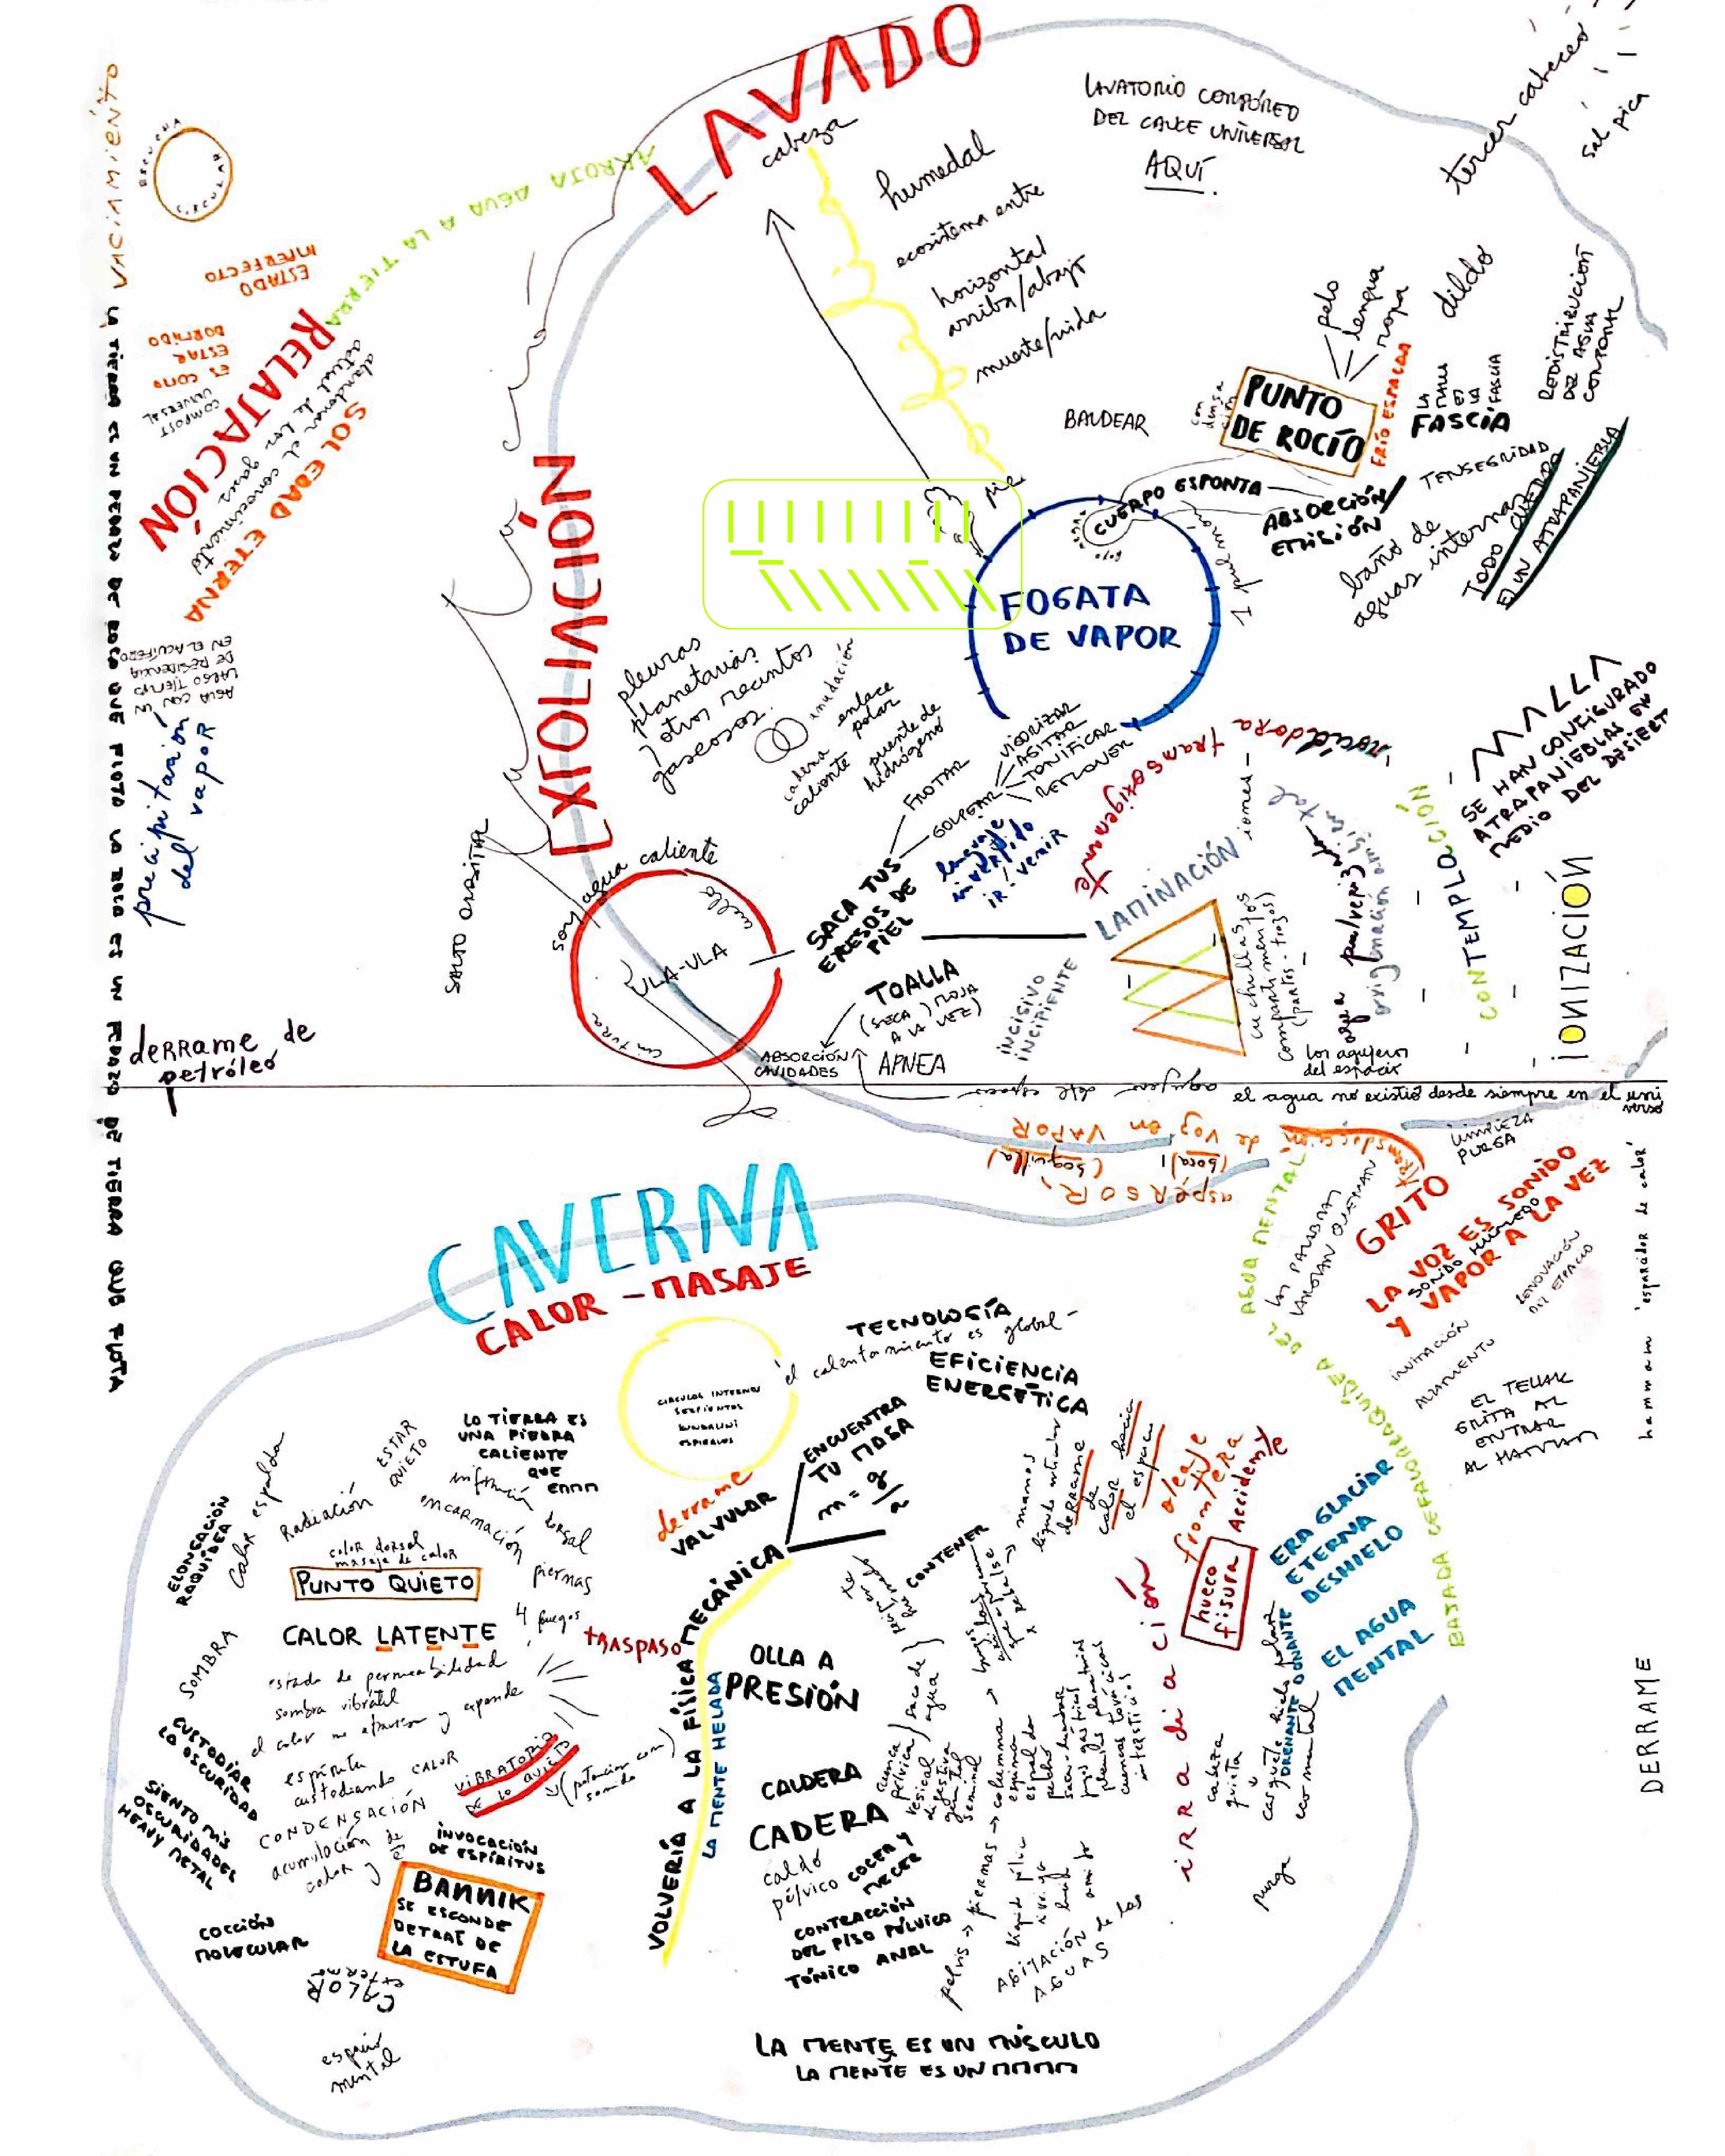 LAVADO
cabeza
LAVATORIO CORPÓREO
DEL CAUCE UNIVERSAL
AQUÍ.
tercer cabeceo
sal pica
VACIAMIENTO
ESCUCHA
CIRCULAR
ARROJA AGUA A LA TIERRA
humedal
ecosistema entre
horizontal
arriba/abajo
muerte/vida
pie
ESTADO
IMPERFECTO
RELAJACIÓN
abandonar el conocimiento
actual de los gases
COMPOST
UNIVERSAL
ES COMO
ESTAR
DORMIDO
SOLEDAD ETERNA
AGUA CON SU
LARGO TIEMPO
DE RESIDENCIA
EN EL ACUÍFERO
precipitación
del vapor
LA TIERRA ES UN PEDAZO DE ROCA QUE FLOTA LA ROCA ES UN PEDAZO DE TIERRA QUE FLOTA
pelo
lengua
ropa
dildo
REDISTRIBUCIÓN
DEL AGUA
CORPORAL
BALDEAR
condensación
PUNTO
DE ROCÍO
FRÍO ESPALDA
LA NAVE
ES LA
FASCIA
FASCIA
TENSEGRIDAD
CUERPO ESPONJA
ABSORCIÓN/
EMISIÓN
baño de
aguas internas
TODO CUERPO
ES UN ATRAPANIEBLA
1 pulmón
FOGATA
DE VAPOR
EXFOLIACIÓN
pleuras
planetarias
y otros recintos
gaseosos.
anudación
enlace
polar
cadena
caliente
puente de
hidrógeno
FROTAR
GOLPEAR
VIGORIZAR
AGITAR
TONIFICAR
REMOVER
rociadora transoxigenante
MALLA
SE HAN CONFIGURADO
ATRAPANIEBLAS EN
MEDIO DEL DESIERTO
SALTO ORBITAL
soy agua caliente
cuello
ULA-ULA
cintura
SACA TUS
EXCESOS DE
PIEL
lenguaje
invertido
IR - VENIR
LAMINACIÓN
iones
TOALLA
(SECA Y MOJA
A LA VEZ)
ABSORCIÓN
CAVIDADES
APNEA
INCISIVO
INCIPIENTE
cuchillas
compartimientos
(partes - trozos)
los agujeros
del espacio
agua pulverizada
oxigenación ambiental
CONTEMPLACIÓN
IONIZACIÓN
derrame de
petróleo
agujeros del espacio
el agua no existió desde siempre en el universo
transducción de voz en VAPOR
(boca) (boquilla)
ASPERSOR
LIMPIEZA
PURGA
GRITO
LAS PALABRAS
LAS QUE QUEMAN
LA VOZ ES SONIDO
SONIDO HÚMEDO
Y VAPOR A LA VEZ
RENOVACIÓN
DEL ESPACIO
INVITACIÓN
ALZAMIENTO
EL TELLAK
GRITA AL
ENTRAR
AL HAMMAM
hammam 'esparcidor de calor'
DERRAME
BAJADA CEFALORRAQUÍDEA DEL AGUA MENTAL
CAVERNA
CALOR - MASAJE
CÍRCULOS INTERNOS
SERPIENTES
KUNDALINI
ESPIRALES
TECNOLOGÍA
el calentamiento es global
EFICIENCIA
ENERGÉTICA
ENCUENTRA
TU MASA
m = g/a
derrame
VALVULAR
LA TIERRA ES
UNA PIEDRA
CALIENTE
QUE
EMMM
ESTAR
QUIETO
información dorsal
encarnación
Radiación
calor espalda
ELONGACIÓN
RAQUÍDEA
calor dorsal
masaje de calor
PUNTO QUIETO
piernas
4 fuegos
CALOR LATENTE
SOMBRA
estado de permeabilidad
sombra vibrátil
el calor me atraviesa y expande
espíritu
custodiando CALOR
CUSTODIAR
LA OSCURIDAD
SIENTO MIS
OSCURIDADES
HEAVY METAL
VIBRATORIO
DE LO QUIETO
(potencia con
sonido)
CONDENSACIÓN
acumulación de
calor y
INVOCACIÓN
DE ESPÍRITUS
BANNIK
SE ESCONDE
DETRÁS DE
LA ESTUFA
COCCIÓN
MOLECULAR
CALOR
externo
espacio
mental
TRASPASO
VOLVERÍA A LA FÍSICA MECÁNICA
LA MENTE HELADA
OLLA A
PRESIÓN
CALDERA
CADERA
caldo
pélvico COCER Y
MECER
CONTRACCIÓN
DEL PISO PÉLVICO
TÓNICO ANAL
CONTENER
cuenca
pélvica
vesical
digestiva
genital
seminal
saco de
agua
pelvis → piernas → columna
AGITACIÓN de las
AGUAS
manos
derrame
de
calor hacia
el espacio
oleaje
frontera
Accidente
hueco
fisura
iRRadiación
ERA GLACIAR
ETERNA
DESHIELO
EL AGUA
MENTAL
DRENANTE DONANTE
casquete hielo polar
eco mental
cabeza
quieta
purga
LA MENTE ES UN MÚSCULO
LA MENTE ES UN MMMM